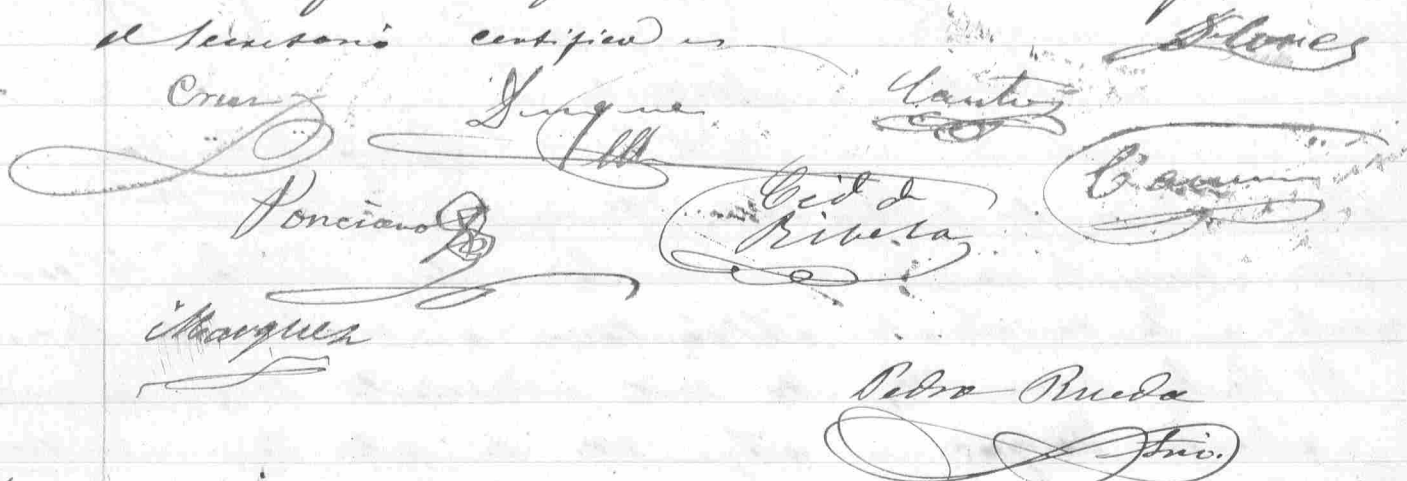 el Secretario certifico =
Flores
Cruz Duque Cantos
Ponciano Cid de
Ribera
Marquez
Pedro Rueda
Srio.